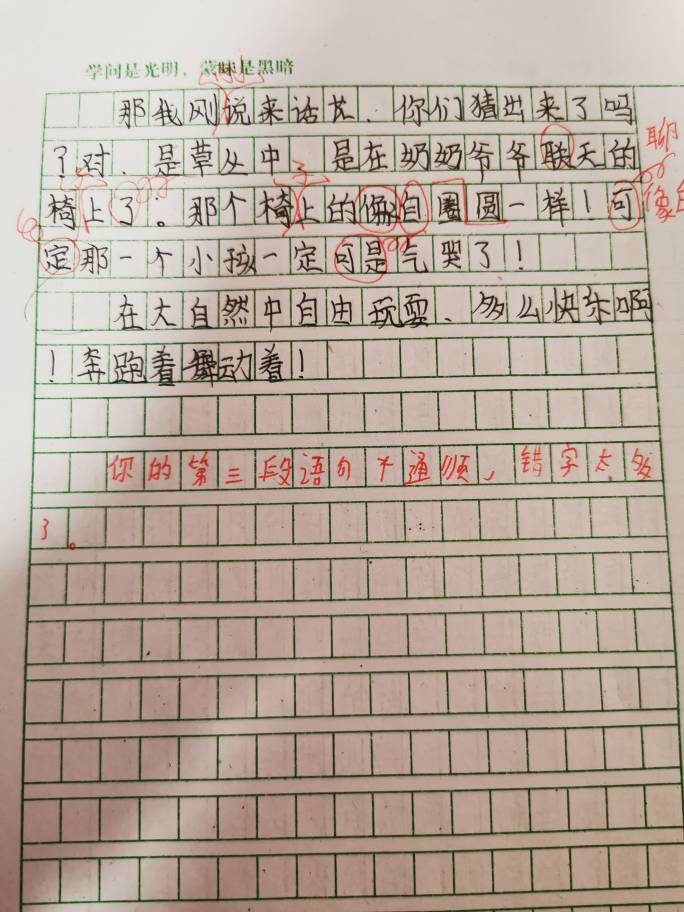 学问是光明，蒙昧是黑暗
那我刚说来话长、你们猜出来了吗
了对、是草丛中、是在奶奶爷爷联天的
聊
椅上了。那个椅上的像自圈圆一样！可
像自
定那一个小孩一定可是气哭了！
在大自然中自由玩耍、多么快乐啊
！奔跑着舞动着！
你的第三段语句不通顺，错字太多
了。